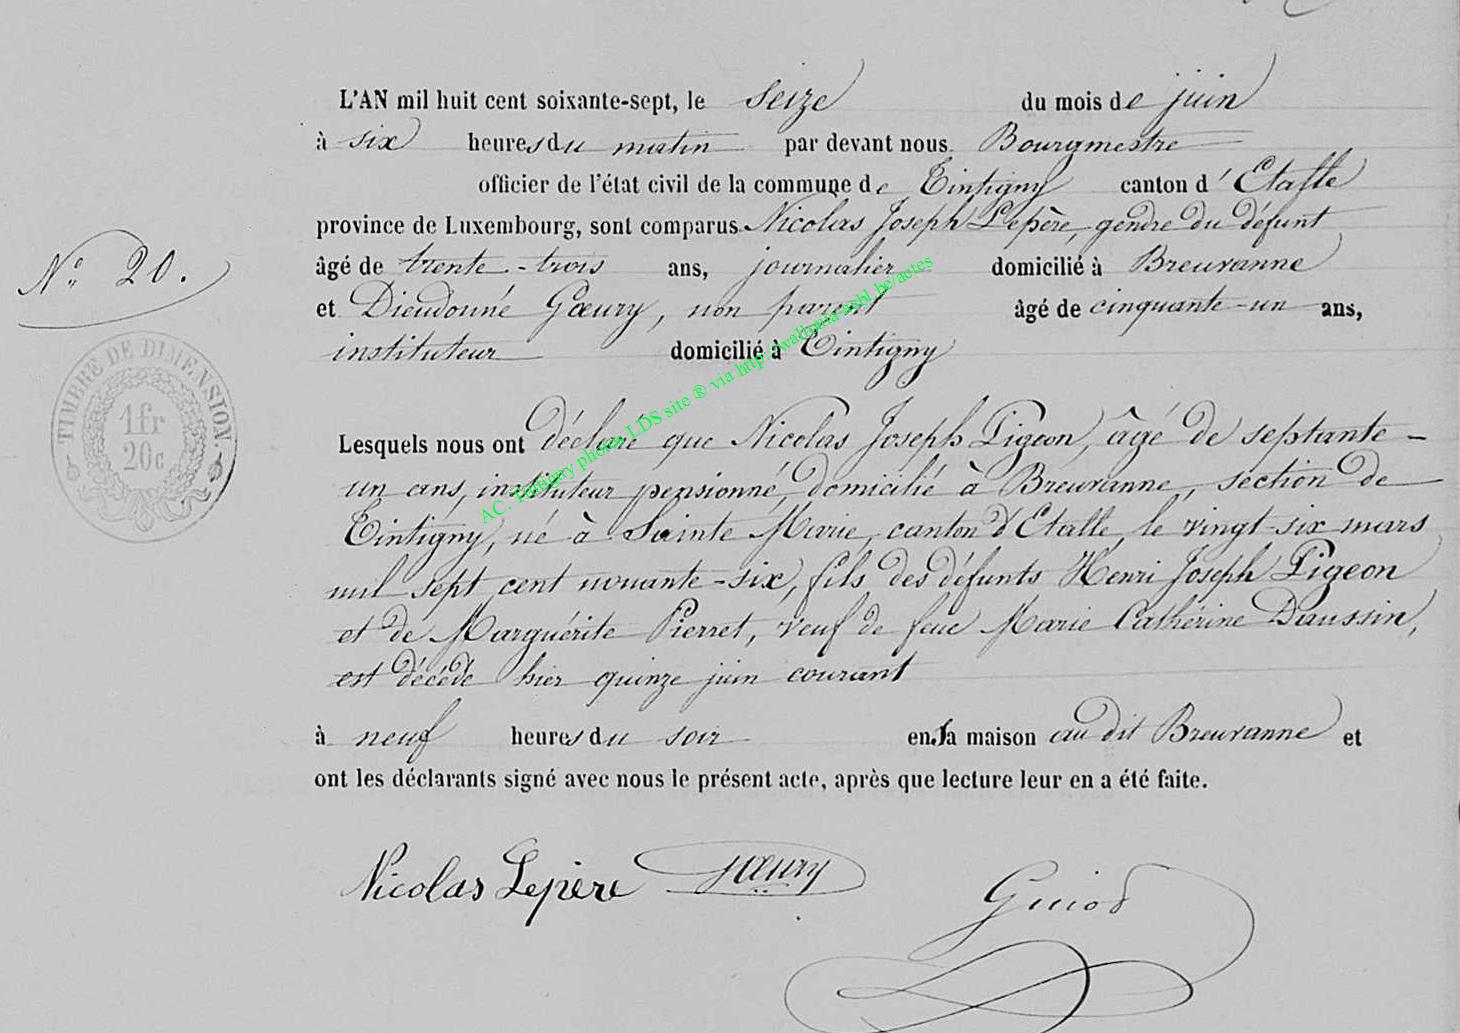 L'AN mil huit cent soixante-sept, le seize du mois de juin
à six heures du matin par devant nous Bourgmestre
officier de l'état civil de la commune de Tintigny canton d'Etalle
province de Luxembourg, sont comparus Nicolas Joseph Lepère, gendre du défunt
âgé de trente-trois ans, journalier domicilié à Breuvanne
et Dieudonné Gœury, non parent âgé de cinquante-un ans,
instituteur domicilié à Tintigny
N° 20.
TIMBRE DE DIMENSION.
1 fr
20 c
Lesquels nous ont déclaré que Nicolas Joseph Pigeon, âgé de septante-
un ans, instituteur pensionné, domicilié à Breuvanne, section de
Tintigny, né à Sainte Marie, canton d'Etalle, le vingt-six mars
mil sept cent nonante-six, fils des défunts Henri Joseph Pigeon
et de Marguérite Pierret, veuf de feue Marie Cathérine Daussin,
est décédé hier quinze juin courant
à neuf heures du soir en sa maison au dit Breuvanne et
ont les déclarants signé avec nous le présent acte, après que lecture leur en a été faite.
Nicolas Lepère Gœury
Guiot
AC. Tintigny photos LDS site ® via http://wallonia-asbl.be/actes